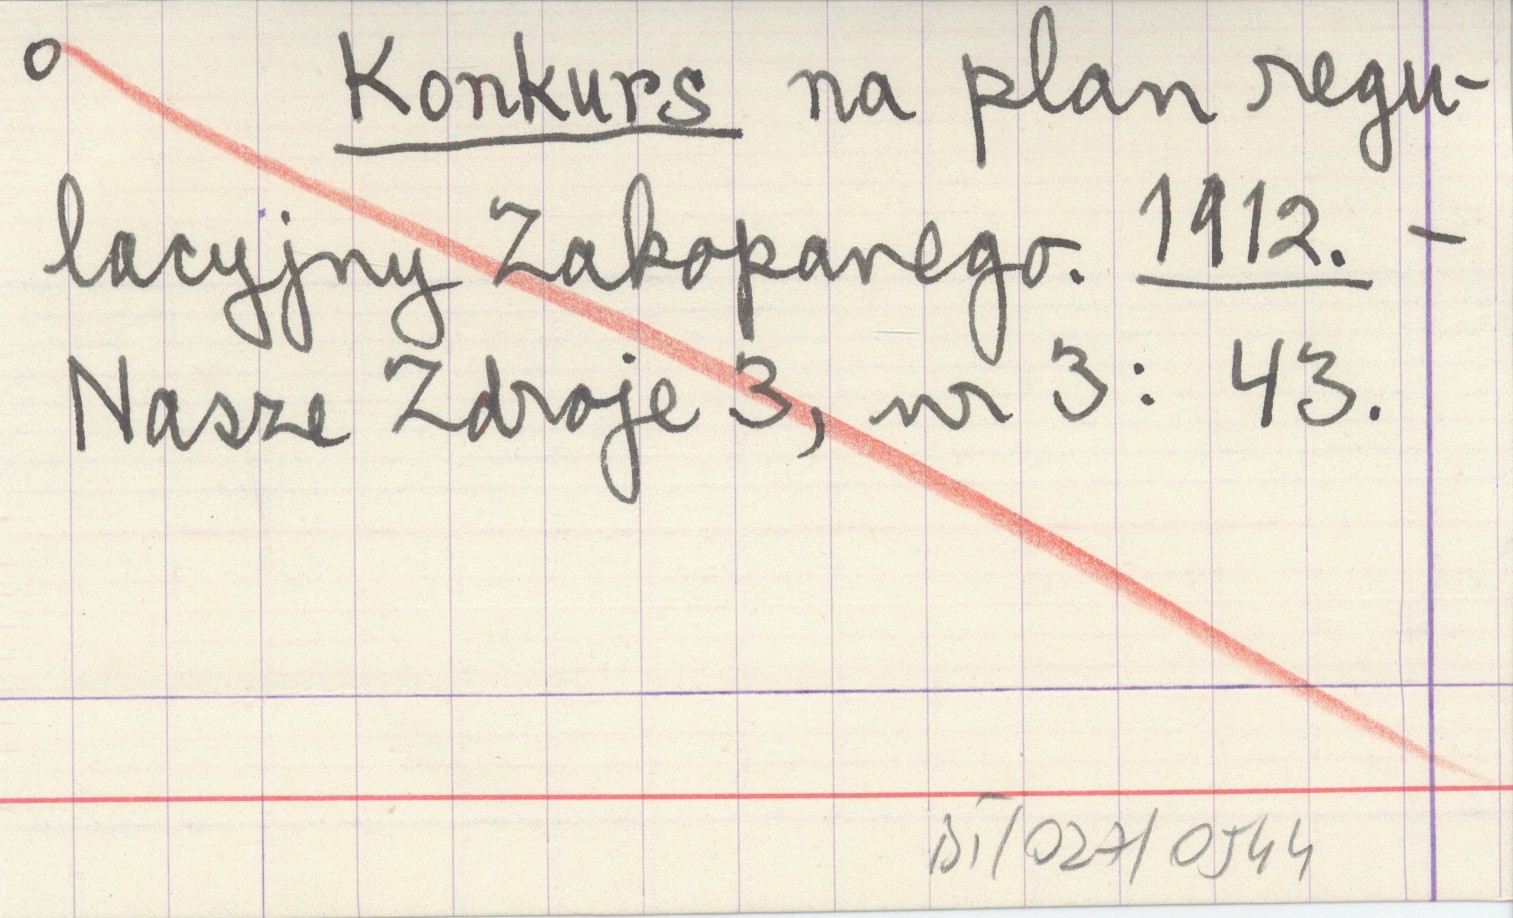 o Konkurs na plan regu-
lacyjny Zakopanego. 1912. -
Nasze Zdroje 3, nr 3: 43.
BI/027/0544